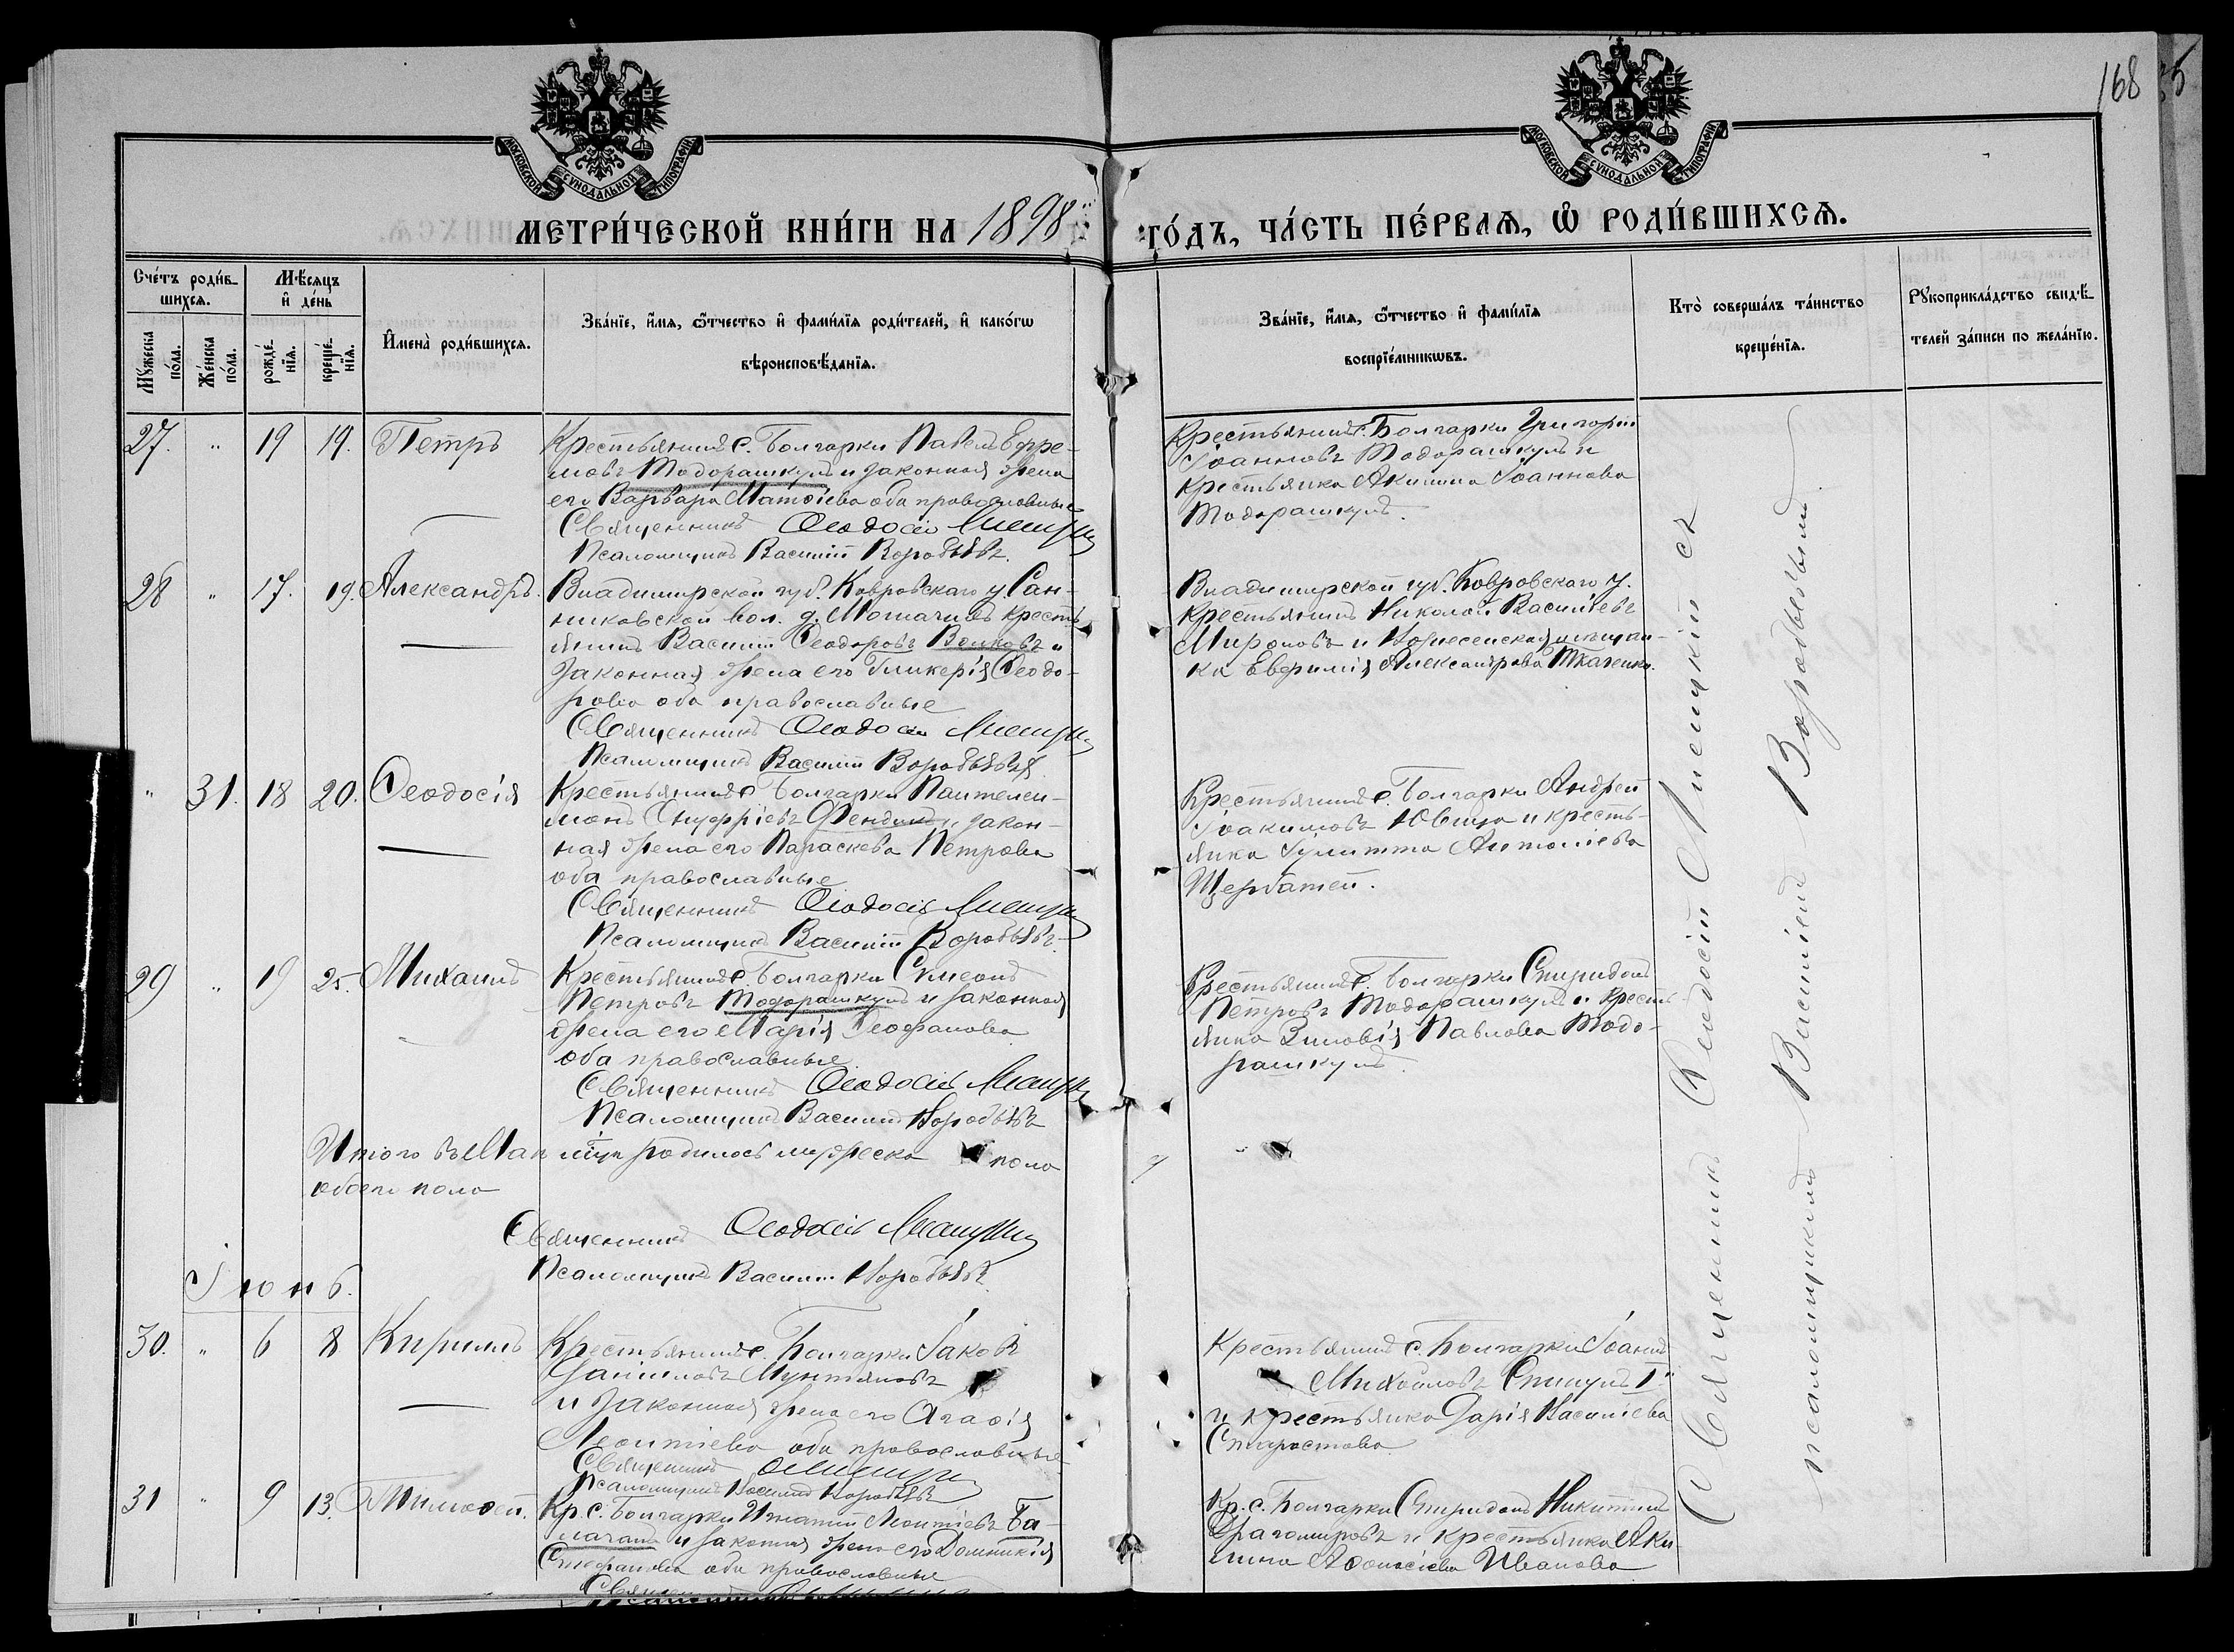 168
МОСКОВСКОЙ СУНОДАЛЬНОЙ ТИПОГРАФІИ
МОСКОВСКОЙ СУНОДАЛЬНОЙ ТИПОГРАФІИ
МЕТРИ́ЧЕСКОЙ КНИ́ГИ НА 1898
ГО́ДЪ, ЧА́СТЬ ПЕ́РВАѦ, Ѡ РОДИ́ВШИХСѦ.
Сче́тъ роди́в-
шихсѧ.
Мꙋ́жеска
по́ла.
Же́нска
по́ла.
Мѣ́сѧцъ
и҆ де́нь
рожде́-
нїѧ.
креще́-
нїѧ.
И҆мена̀ роди́вшихсѧ.
Зва́нїе, и҆́мѧ, ѻ҆́тчество и҆ фами́лїѧ роди́телей, и҆ како́гѡ
вѣроисповѣ́данїѧ.
Зва́нїе, и҆́мѧ, ѻ҆́тчество и҆ фами́лїѧ
воспрїе́мникѡвъ.
Кто̀ соверша́лъ та́инство
креще́нїѧ.
Рꙋкоприкла́дство свидѣ́-
телей за́писи по жела́нїю.
27. " 19 19. Петръ
Крестьянинъ с. Болгарки Павелъ Ефре-
мовъ Тодорашкулъ и законная жена
его Варвара Матѳіева оба православные
Священникъ Ѳеодосій Лисецкій
Псаломщикъ Василій Воробьевъ.
Крестьянинъ с. Болгарки Григорій
Іоанновъ Тодорашкулъ и
крестьянка Акилина Іоаннова
Тодорашкулъ.
28 " 17. 19. Александръ.
Владимирской губ. Ковровскаго у. Сан-
никовской вол. д. кресть-
янинъ Василій Ѳеодоровъ Волковъ и
законная жена его Гликерія Ѳеодо-
рова оба православные
Священникъ Ѳеодосій Лисецкій
Псаломщикъ Василій Воробьевъ
Владимирской губ. Ковровскаго у.
крестьянинъ Николай Васильевъ
Мироновъ и Вознесенская мѣщан-
ка Евфимія Александрова Ткаченко.
" 31. 18 20. Ѳеодосія
Крестьянинъ с. Болгарки Пантелеи-
монъ Онуфріевъ и закон-
ная жена его Параскева Петрова
оба православные
Священникъ Ѳеодосій Лисецкій
Псаломщикъ Василій Воробьевъ.
Крестьянинъ с. Болгарки Андрей
Іоакимовъ и кресть-
янка Іулитта Антоніева
Щербатей.
29 " 19 25. Михаилъ
Крестьянинъ с. Болгарки Симеонъ
Петровъ Тодорашкулъ и законная
жена его Марія Ѳеофанова
оба православные
Священникъ Ѳеодосій Лисецкій
Псаломщикъ Василій Воробьевъ
Крестьянинъ с. Болгарки Спиридонъ
Петровъ Тодорашкулъ и кресть-
янка Зиновія Павлова Тодо-
рашкулъ.
Итого въ Маѣ мцѣ родилось мужеска пола
обоего пола
Священникъ Ѳеодосій Лисецкій
Псаломщикъ Василій Воробьевъ
Іюнь.
30. " 6 8 Кириллъ
Крестьянинъ с. Болгарки Іаковъ
Даниловъ Мунтяновъ
и законная жена его Агаѳія
Леонтіева оба православные
Священникъ Лисецкій
Псаломщикъ Василій Воробьевъ
Крестьянинъ с. Болгарки Іоаннъ
Михайловъ I
и крестьянка Дарія Василіева
Старостова
31 " 9 13. Тимоѳей.
Кр. с. Болгарки Игнатій Леонтіевъ Ба-
и законная жена его Домникія
Стефанова оба православные
Кр. с. Болгарки Спиридонъ Никитинъ
Драгомировъ и крестьянка Аки-
лина Аѳонасіева Иванова
Священникъ Ѳеодосій Лисецкій съ
псаломщикомъ Василіемъ Воробьевымъ